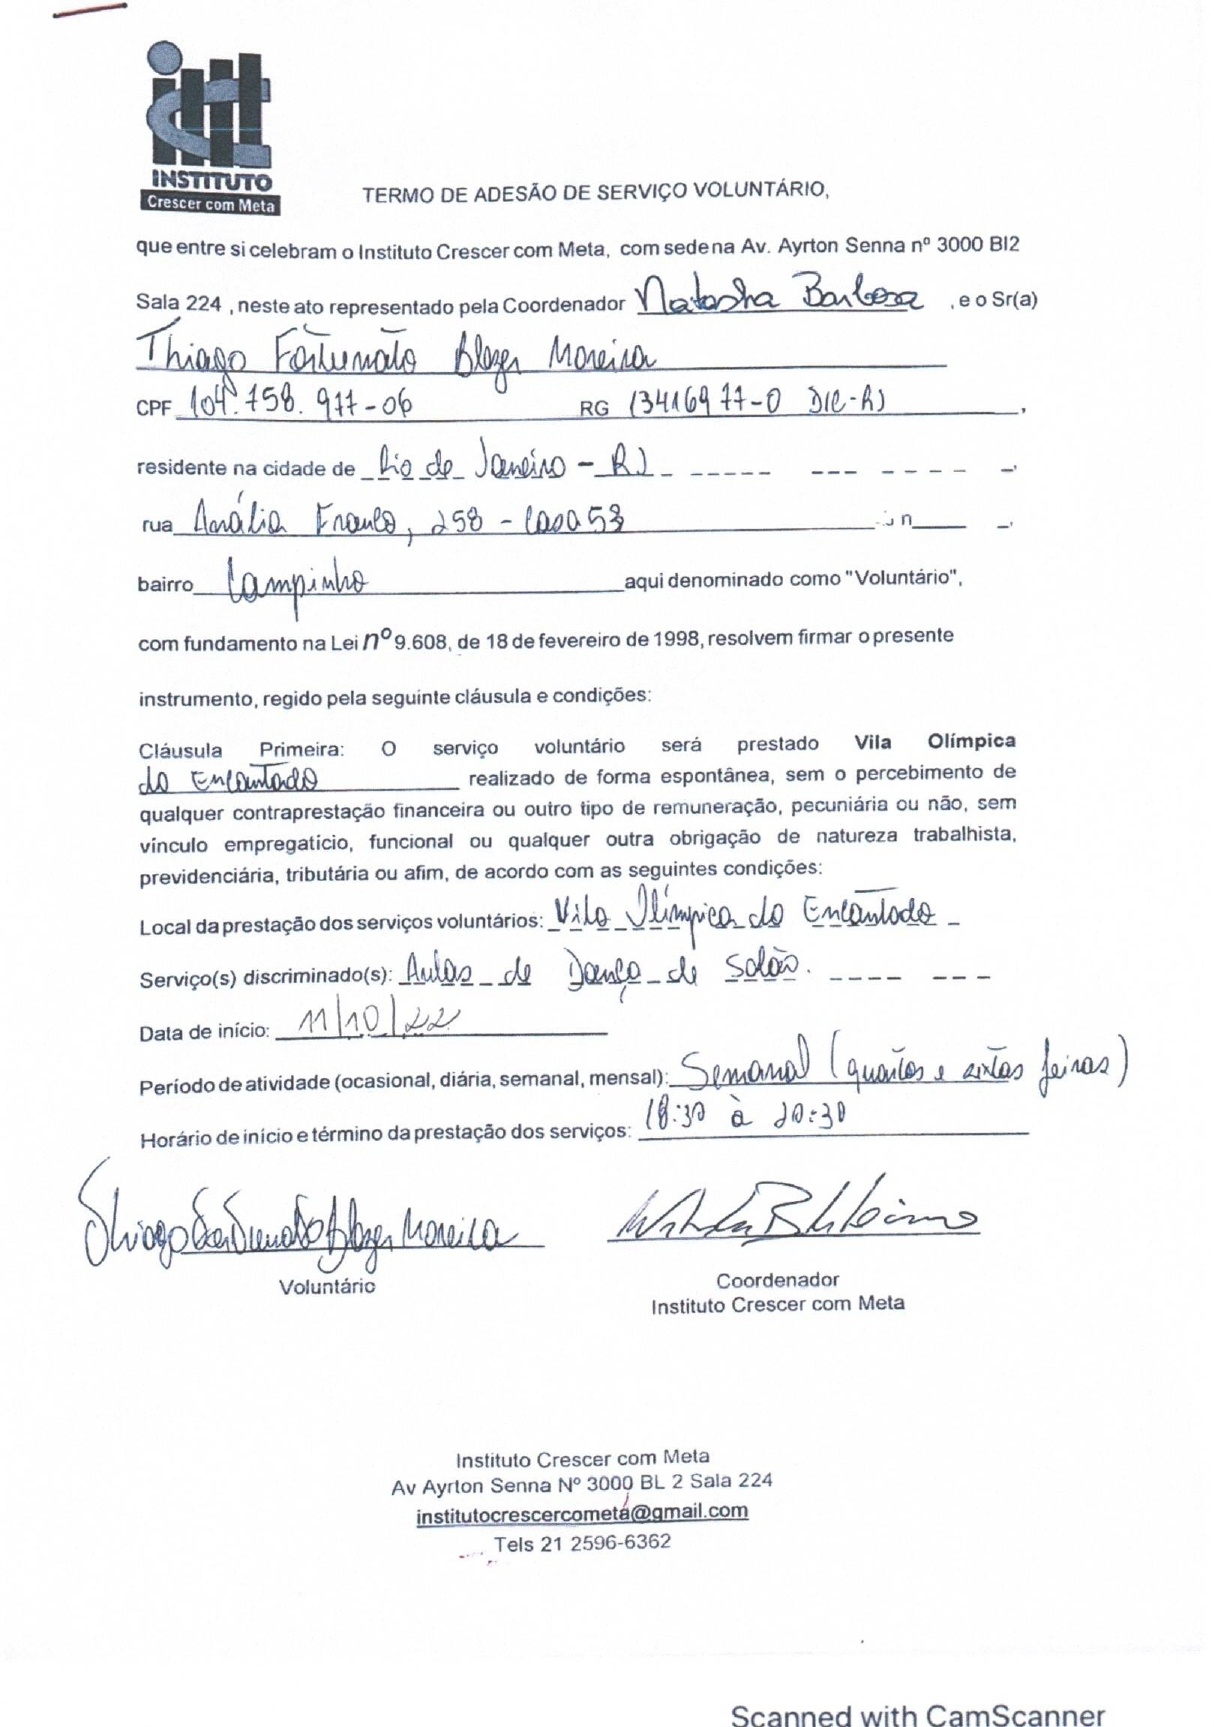 INSTITUTO
Crescer com Meta
TERMO DE ADESÃO DE SERVIÇO VOLUNTÁRIO,
que entre si celebram o Instituto Crescer com Meta, com sede na Av. Ayrton Senna nº 3000 Bl2
Sala 224 , neste ato representado pela Coordenador Natasha Barbosa , e o Sr(a)
Thiago Fortunato Blazer Moreira
CPF 104.758.977-06 RG 13416977-0 DIC-RJ ,
residente na cidade de Rio de Janeiro - RJ
rua Amália Franco, 258 - Casa 53 n
bairro Campinho aqui denominado como "Voluntário",
com fundamento na Lei nº 9.608, de 18 de fevereiro de 1998, resolvem firmar o presente
instrumento, regido pela seguinte cláusula e condições:
Cláusula Primeira: O serviço voluntário será prestado Vila Olímpica
do Encantado realizado de forma espontânea, sem o percebimento de
qualquer contraprestação financeira ou outro tipo de remuneração, pecuniária ou não, sem
vínculo empregatício, funcional ou qualquer outra obrigação de natureza trabalhista,
previdenciária, tributária ou afim, de acordo com as seguintes condições:
Local da prestação dos serviços voluntários: Vila Olímpica do Encantado
Serviço(s) discriminado(s): Aulas de Dança de Salão.
Data de início: 11/10/22
Período de atividade (ocasional, diária, semanal, mensal): Semanal (quartas e sextas feiras)
Horário de início e término da prestação dos serviços: 18:30 à 20:30
Thiago Fortunato Blazer Moreira
Voluntário
Coordenador
Instituto Crescer com Meta
Instituto Crescer com Meta
Av Ayrton Senna Nº 3000 BL 2 Sala 224
institutocrescercometa@gmail.com
Tels 21 2596-6362
Scanned with CamScanner